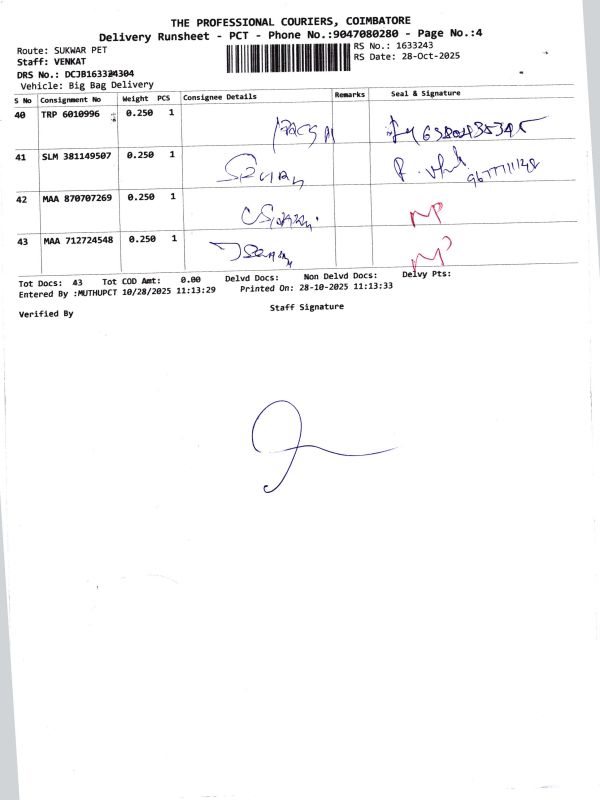 THE PROFESSIONAL COURIERS, COIMBATORE
Delivery Runsheet - PCT - Phone No.:9047080280 - Page No.:4
Route: SUKWAR PET RS No.: 1633243
Staff: VENKAT RS Date: 28-Oct-2025
DRS No.: DCJB163324304
Vehicle: Big Bag Delivery
S No Consignment No Weight PCS Consignee Details Remarks Seal & Signature
40 TRP 6010996 0.250 1
41 SLM 381149507 0.250 1
42 MAA 870707269 0.250 1 NP
43 MAA 712724548 0.250 1 NP
Tot Docs: 43 Tot COD Amt: 0.00 Delvd Docs: Non Delvd Docs: Delvy Pts:
Entered By :MUTHUPCT 10/28/2025 11:13:29 Printed On: 28-10-2025 11:13:33
Verified By Staff Signature